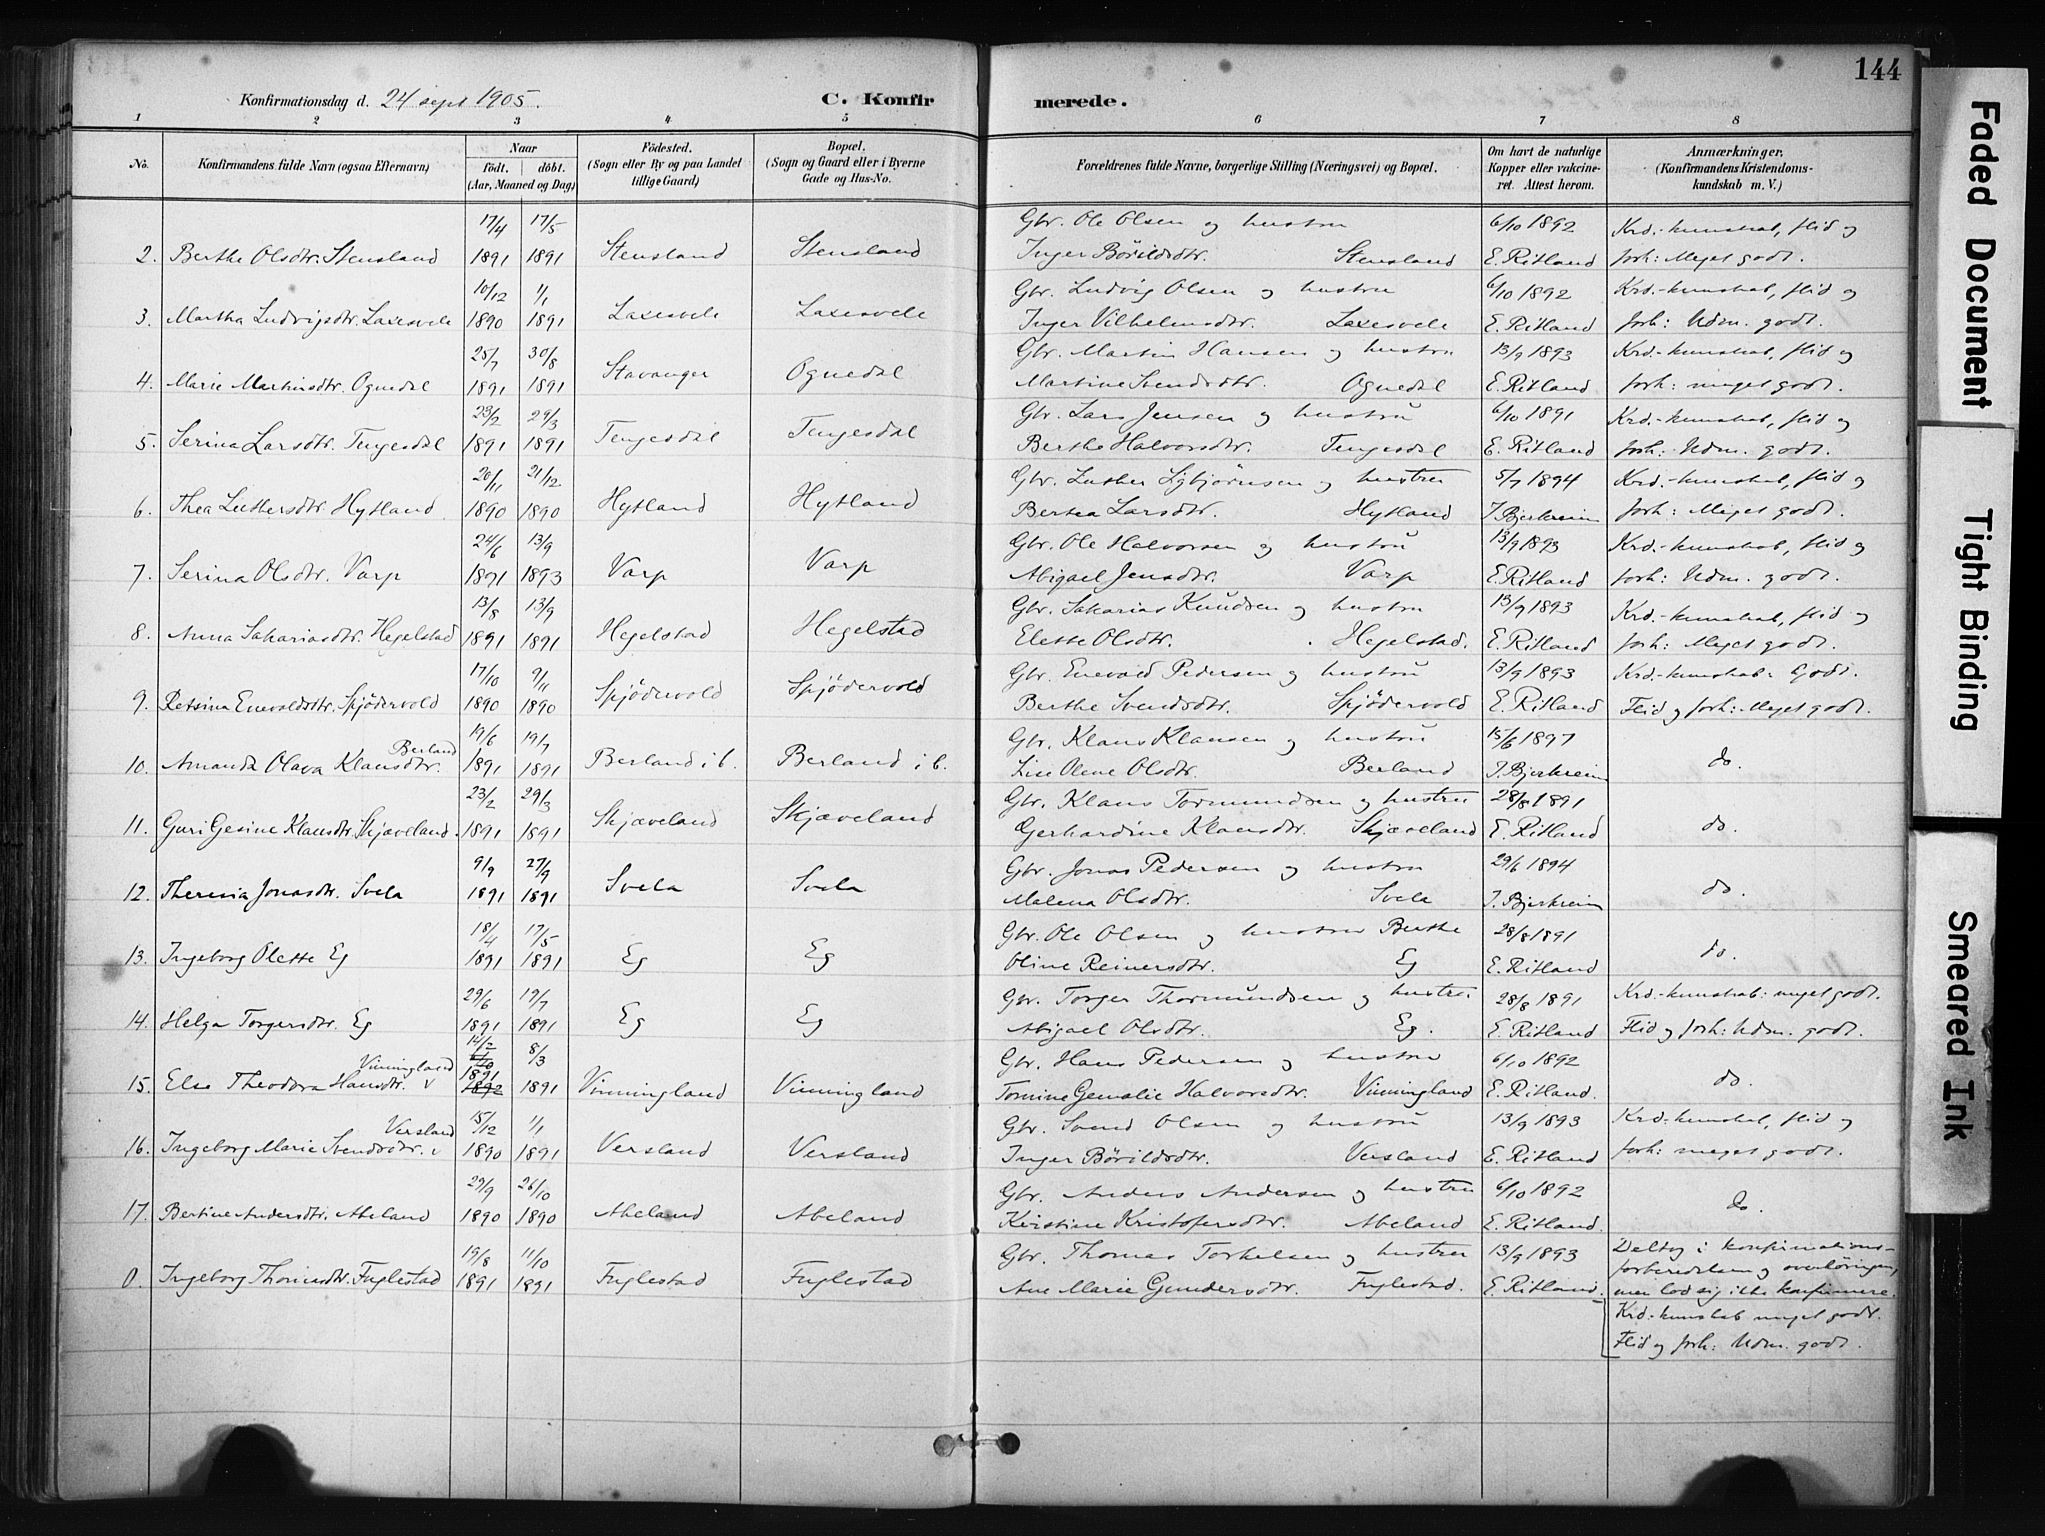 144
Konfirmationsdag d. 24 sept 1905. C. Konfir merede.
1 2 3 4 5 6 7 8
No. Konfirmandens fulde Navn (ogsaa Efternavn) Naar födt. döbt. (Aar, Maaned og Dag) Födested. (Sogn eller By og paa Landet tillige Gaard) Bopæl. (Sogn og Gaard eller i Byerne Gade og Hus-No. Forældrenes fulde Navne, borgerlige Stilling (Næringsvei) og Bopæl. Om havt de naturlige Kopper eller vakcineret. Attest herom. Anmærkninger, (Konfirmandens Kristendomskundskab m. V.)
17/4 17/5 Gbr. Ole Olsen og hustru 6/10 1892 Krd.-kunskab, flid og
2. Berthe Olsdtr. Stensland 1891 1891 Stensland Stensland Inger Børildsdtr. Stensland E. Ritland forh: Meget godt.
10/12 1/1 Gbr. Ludvig Olsen og hustru 6/10 1892 Krd.-kunskab, flid og
3. Martha Ludvigsdtr. Laxesvele 1890 1891 Laxesvele Laxesvele Inger Vilhelmsdtr. Laxesvele E. Ritland forh: Udm. godt.
25/7 30/8 Gbr. Martin Hansen og hustru 13/9 1893 Krd.-kunskab, flid og
4. Marie Martinsdtr. Ognedal 1891 1891 Stavanger Ognedal Martine Svendsdtr. Ognedal E. Ritland forh: meget godt.
23/2 29/3 Gbr. Lars Jensen og hustru 6/10 1891 Krd.-kunskab, flid og
5. Serina Larsdtr. Tengesdal 1891 1891 Tengesdal Tengesdal Berthe Halvorsdtr. Tengesdal E. Ritland forh: Udm. godt.
20/11 21/12 Gbr. Luther Sigbjørnsen og hustru 5/7 1894 Krd.-kunskab, flid og
6. Thea Luthersdtr. Hytland 1890 1890 Hytland Hytland Bertea Larsdtr. Hytland J. Bjerkreim forh: Meget godt.
24/6 13/9 Gbr. Ole Halvorsen og hustru 13/9 1893 Krd.-kunskab, flid og
7. Serina Olsdtr. Varp 1891 1893 Varp Varp Abigael Jensdtr. Varp E. Ritland forh: Udm. godt.
13/8 13/9 Gbr. Sakarias Knudsen og hustru 13/9 1893 Krd.-kunskab, flid og
8. Anna Sakariasdtr. Hegelstad 1891 1891 Hegelstad Hegelstad Elette Olsdtr. Hegelstad. E. Ritland forh: Meget godt.
17/10 9/11 Gbr. Enevald Pedersen og hustru 13/9 1893 Krd.-kunskab: Godt.
9. Retsina Enevaldsdtr. Spjødervold 1890 1890 Spjødervold Spjødervold Berthe Svendsdtr. Spjødervold E. Ritland Flid og forh: Meget godt.
Berland 19/6 19/7 Gbr. Klaus Klausen og hustru 15/6 1897
10. Amanda Olava Klausdtr. 1891 1891 Berland i b. Berland i b. Lise Olene Olsdtr. Berland J. Bjerkreim do.
23/2 29/3 Gbr. Klaus Tormundsen og hustru 28/8 1891
11. Guri Gesine Klausdtr. Skjæveland. 1891 1891 Skjæveland Skjæveland Gerhardine Klausdtr. Skjæveland E. Ritland do.
9/9 27/9 Gbr. Jonas Pedersen og hustru 29/6 1894
12. Theresia Jonasdtr. Svela 1891 1891 Svela Svela Malena Olsdtr. Svela J. Bjerkreim do.
18/4 17/5 Gbr. Ole Olsen og hustru Berthe 28/8 1891
13. Ingeborg Olette Eg 1891 1891 Eg Eg Oline Reinersdtr. Eg E. Ritland do.
29/6 19/7 Gbr. Torger Thormundsen og hustru 28/8 1891 Krd.-kunskab: meget godt.
14. Helga Torgersdtr. Eg 1891 1891 Eg Eg Abigael Olsdtr. Eg. E. Ritland Flid og forh: Udm. godt.
14/2 6/10 8/3 Gbr. Hans Pedersen og hustru 6/10 1892
Vinningland 1891
15. Else Theodora Hansdtr. v 1892 1891 Vinningland Vinningland Tomine Gemalie Halvorsdtr. Vinningland E. Ritland. do.
Versland 15/12 1/1 Gbr. Svend Olsen og hustru 13/9 1893 Krd.-kunskab, flid og
16. Ingeborg Marie Svendsdtr. v 1890 1891 Versland Versland Inger Børildsdtr. Versland E. Ritland forh: meget godt.
29/9 26/10 Gbr. Anders Andersen og hustru 6/10 1892
17. Bertine Andersdtr. Abeland 1890 1890 Abeland Abeland Kirstine Kristofersdtr. Abeland E. Ritland. do.
19/8 11/10 Gbr. Thomas Torkelsen og hustru 13/9 1893 Deltog i konfirmations-
forberedelsen og overhøringen,
0. Ingeborg Thomasdtr. Fuglestad 1891 1891 Fuglestad Fuglestad Ane Marie Gundersdtr. Fuglestad. E. Ritland. men lod sig ikke konfirmere.
Krd.-kunskab meget godt.
Flid og forh: Udm. godt.
Faded Document
Tight Binding
Smeared Ink